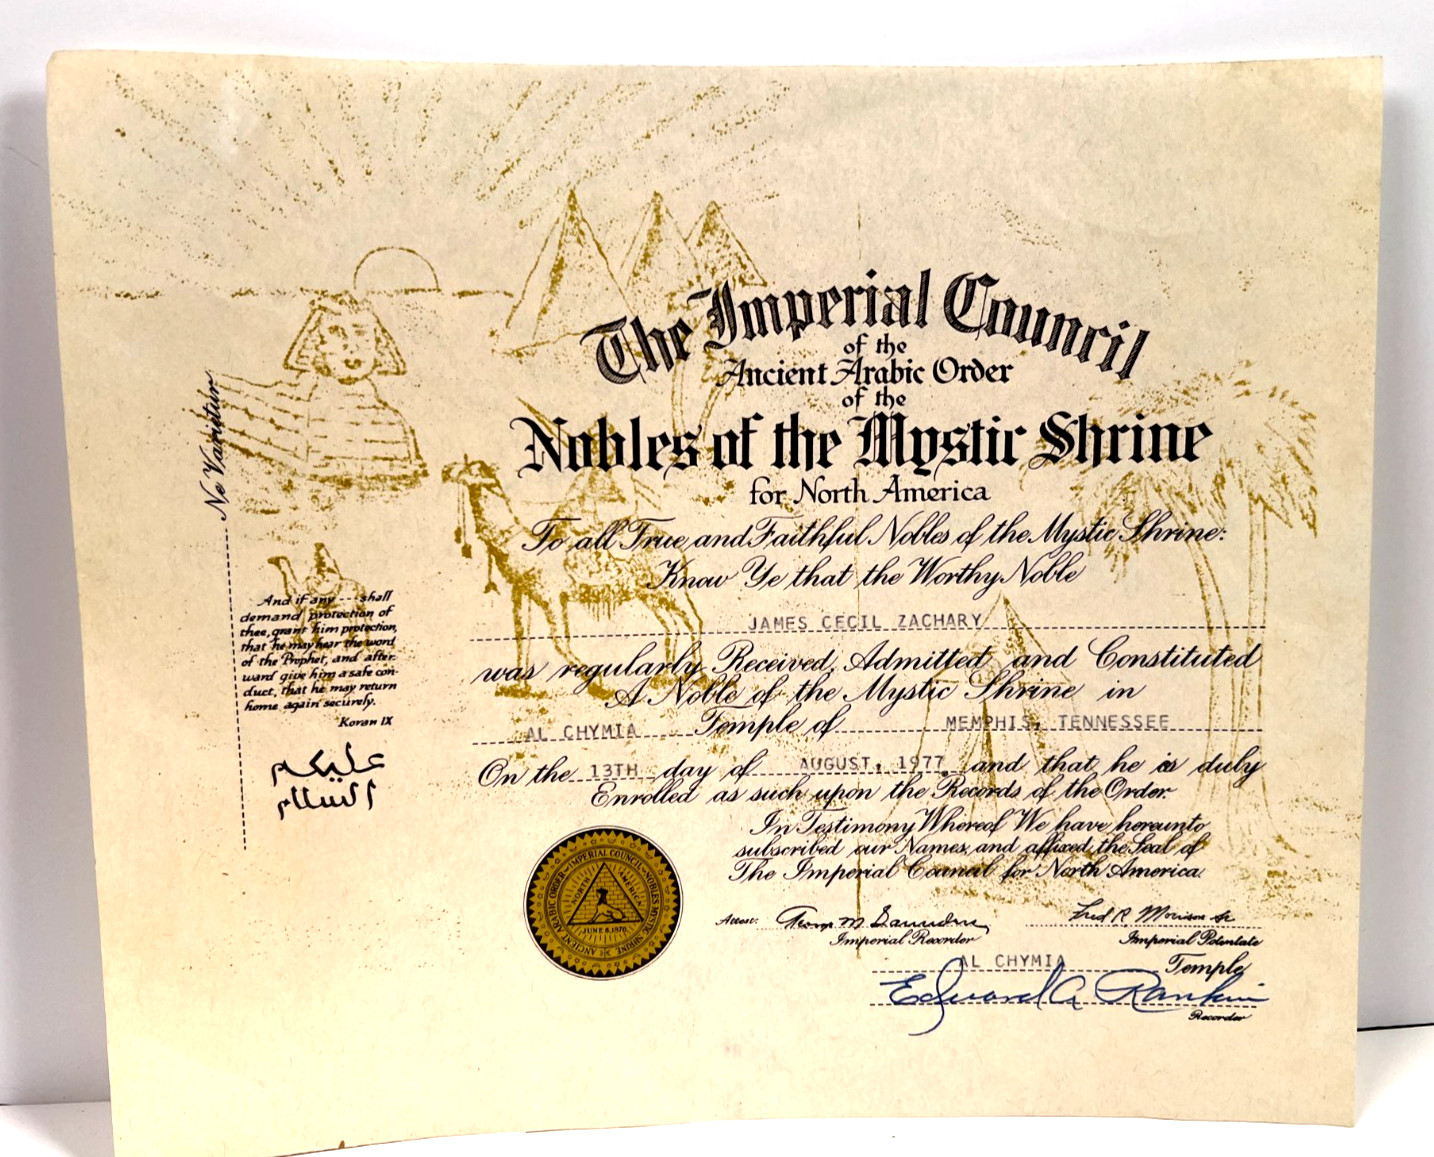 The Imperial Council
of the
Ancient Arabic Order
of the
Nobles of the Mystic Shrine
for North America
To all True and Faithful Nobles of the Mystic Shrine:
Know Ye that the Worthy Noble
JAMES CECIL ZACHARY
was regularly Received, Admitted and Constituted
A Noble of the Mystic Shrine in
AL CHYMIA Temple of MEMPHIS, TENNESSEE
On the 13TH day of AUGUST, 1977 and that he is duly
Enrolled as such upon the Records of the Order.
In Testimony Whereof We have hereunto
subscribed our Names, and affixed the Seal of
The Imperial Council for North America.
Attest: George M. Saunders
Imperial Recorder
Fred R. Morrison Sr
Imperial Potentate
AL CHYMIA Temple
Edward A Rankin
Recorder
Ne Varietur
And if any --- shall
demand protection of
thee, grant him protection,
that he may hear the word
of the Prophet, and after-
ward give him a safe con-
duct, that he may return
home again securely.
Koran IX
عليكم
السلام
ANCIENT ARABIC ORDER IMPERIAL COUNCIL NOBLES MYSTIC SHRINE
NORTH AMERICA
JUNE 6, 1876